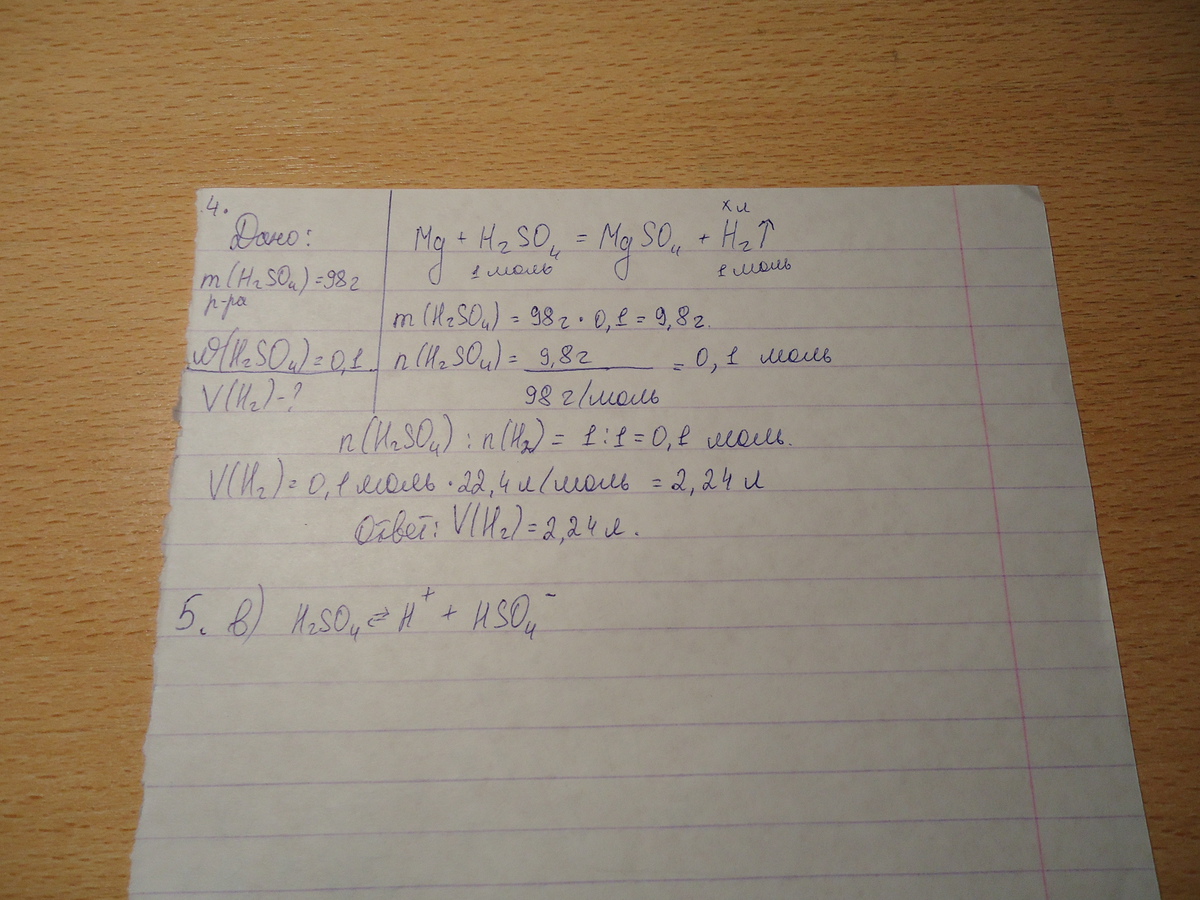 4.
Дано:
m(H₂SO₄)=98г
р-ра
ω(H₂SO₄)=0,1.
V(H₂)-?
x л
Mg + H₂SO₄ = MgSO₄ + H₂↑
1 моль 1 моль
m(H₂SO₄) = 98г · 0,1 = 9,8г.
n(H₂SO₄) = 9,8г = 0,1 моль
98 г/моль
n(H₂SO₄) : n(H₂) = 1:1 = 0,1 моль.
V(H₂)= 0,1 моль · 22,4 л/моль = 2,24 л
Ответ: V(H₂)=2,24 л.
5. в) H₂SO₄ ⇄ H⁺ + HSO₄⁻